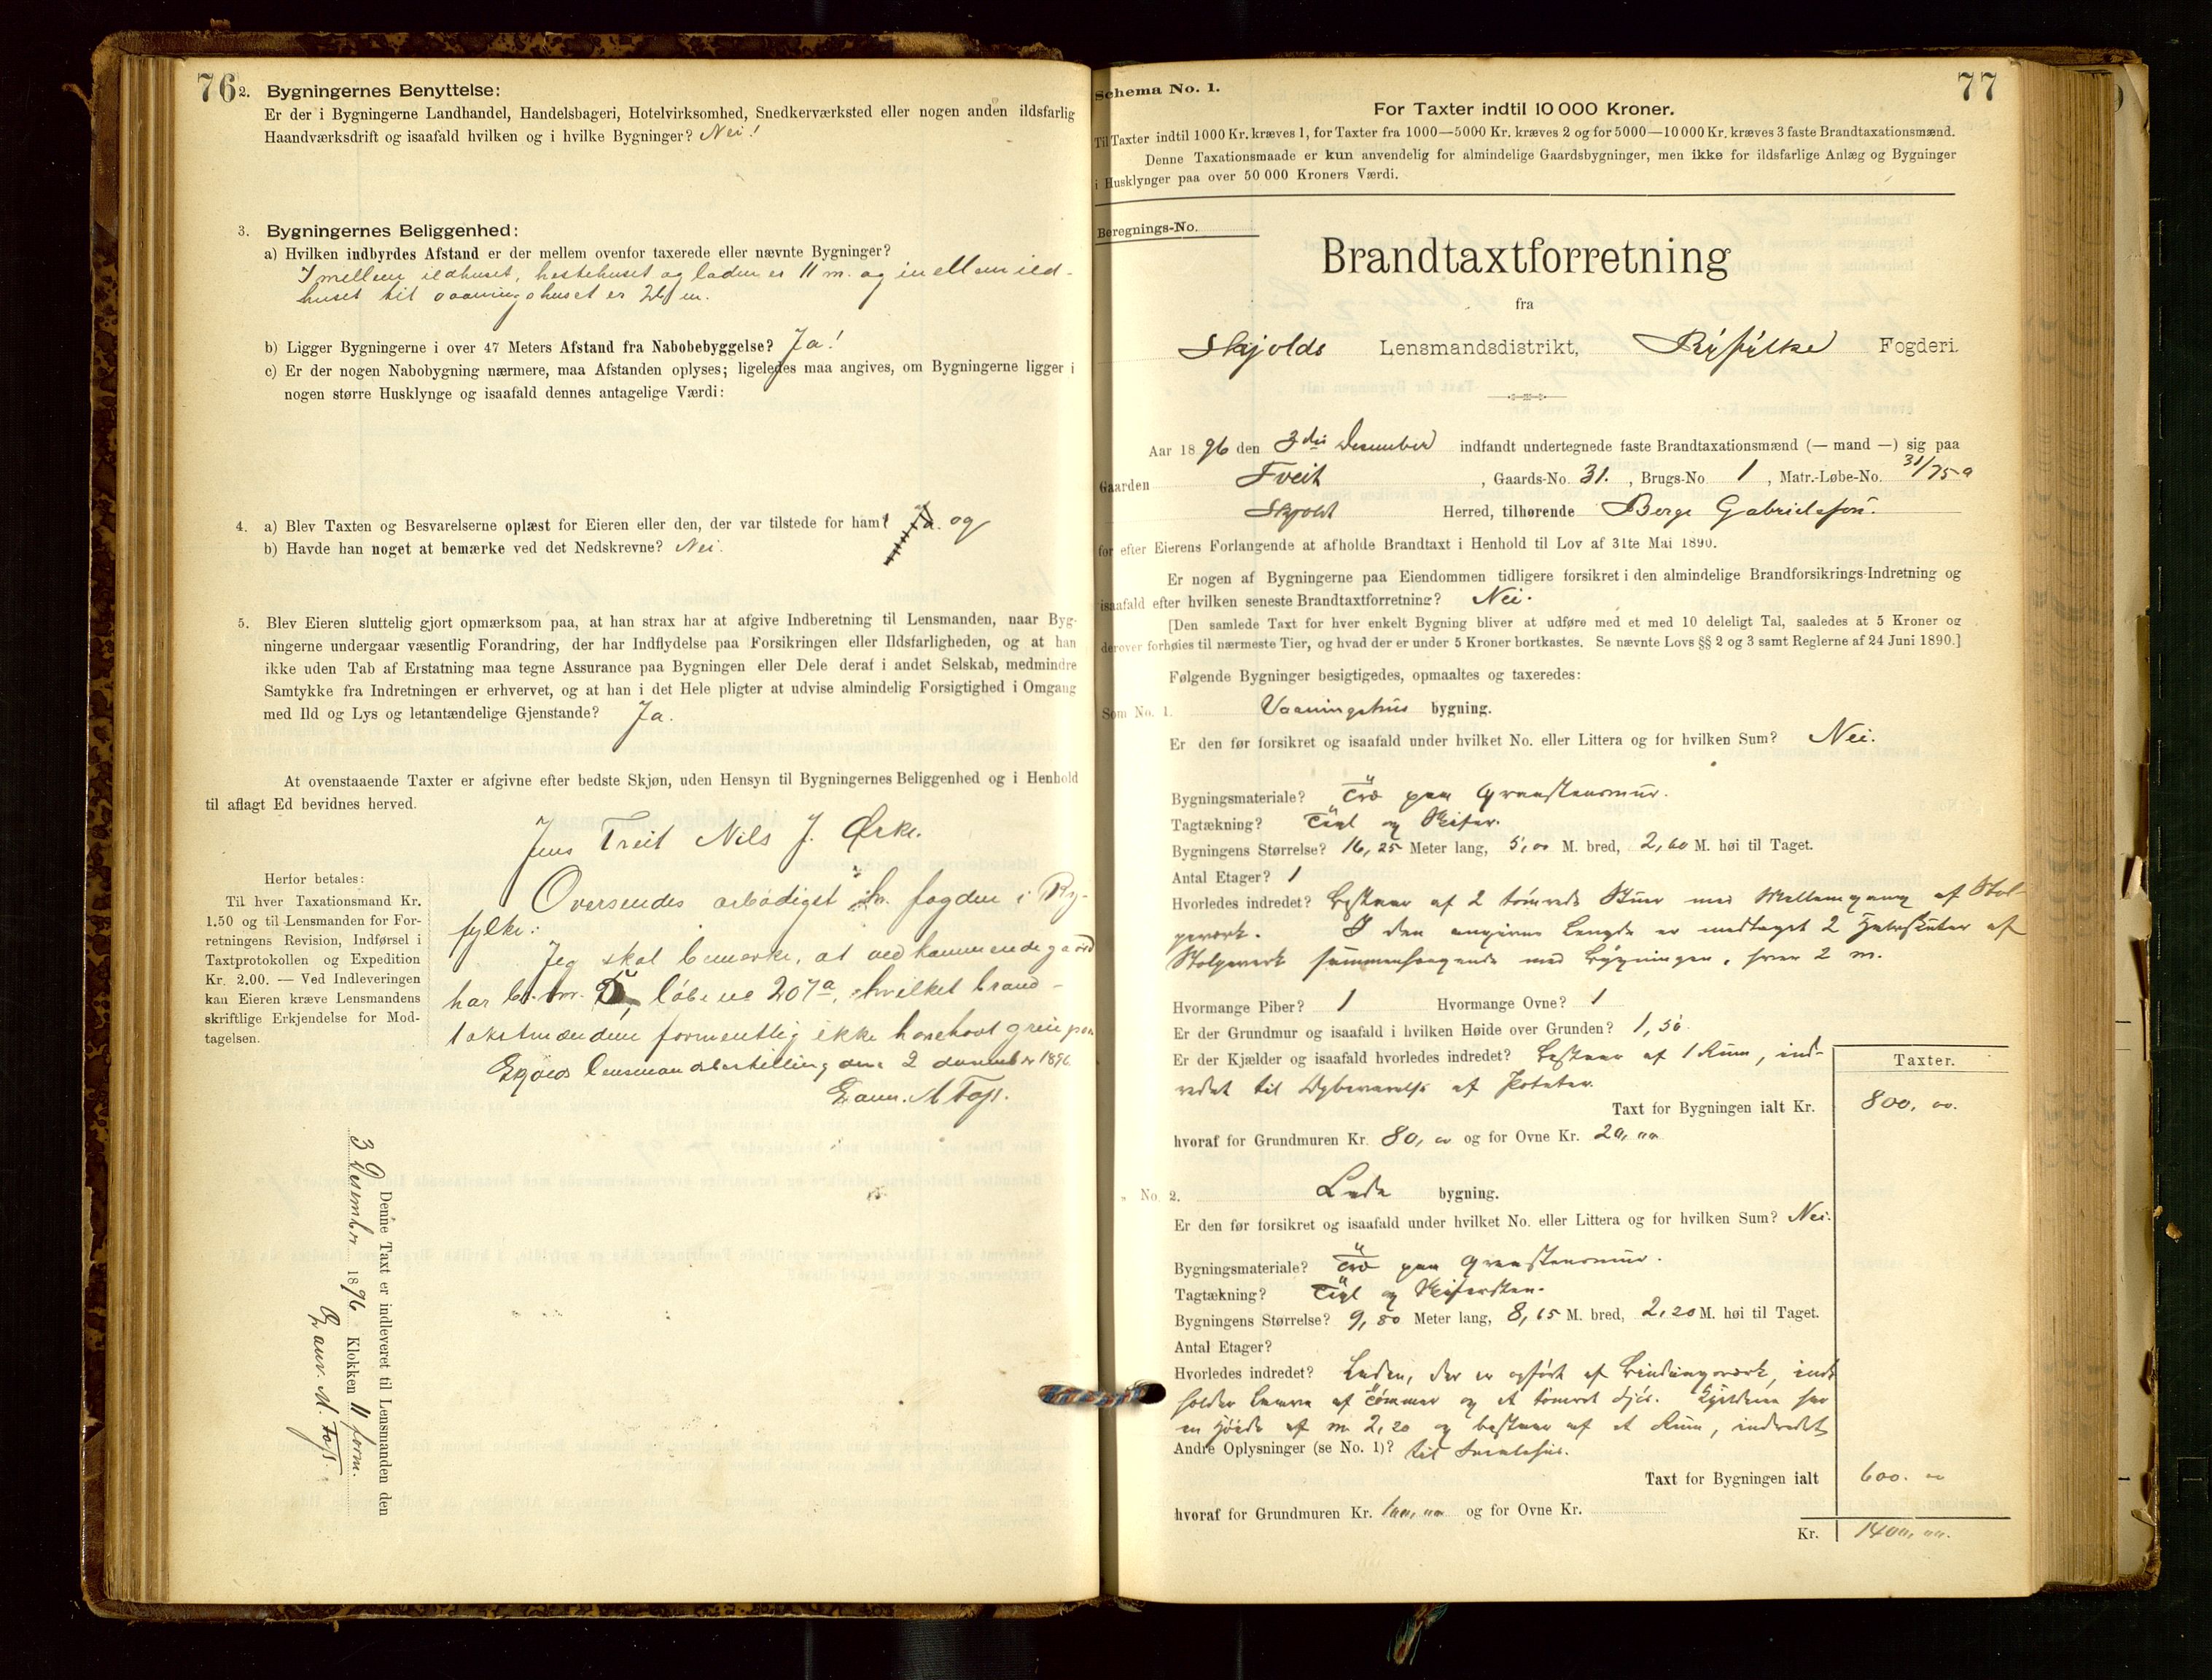 76
2. Bygningernes Benyttelse:
Er der i Bygningerne Landhandel, Handelsbageri, Hotelvirksomhed, Snedkerværksted eller nogen anden ildsfarlig
Haandværksdrift og isaafald hvilken og i hvilke Bygninger? Nei!
3. Bygningernes Beliggenhed:
a) Hvilken indbyrdes Afstand er der mellem ovenfor taxerede eller nævnte Bygninger?
Imellem ildhuset, hestehuset og laden er 11 m. og imellem ild-
huset til vaaningshuset er 26 m.
b) Ligger Bygningerne i over 47 Meters Afstand fra Nabobebyggelse? Ja!
c) Er der nogen Nabobygning nærmere, maa Afstanden oplyses; ligeledes maa angives, om Bygningerne ligger i
nogen større Husklynge og isaafald dennes antagelige Værdi:
4. a) Blev Taxten og Besvarelserne oplæst for Eieren eller den, der var tilstede for ham? og
b) Havde han noget at bemærke ved det Nedskrevne? Nei.
5. Blev Eieren sluttelig gjort opmærksom paa, at han strax har at afgive Indberetning til Lensmanden, naar Byg-
ningerne undergaar væsentlig Forandring, der har Indflydelse paa Forsikringen eller Ildsfarligheden, og at han
ikke uden Tab af Erstatning maa tegne Assurance paa Bygningen eller Dele deraf i andet Selskab, medmindre
Samtykke fra Indretningen er erhvervet, og at han i det Hele pligter at udvise almindelig Forsigtighed i Omgang
med Ild og Lys og letantændelige Gjenstande? Ja.
At ovenstaaende Taxter er afgivne efter bedste Skjøn, uden Hensyn til Bygningernes Beliggenhed og i Henhold
til aflagt Ed bevidnes herved.
Jens Tveit Nils J. Ørke.
Oversendes ærbødigst hr. fogden i Ry-
fylke.
Jeg skal bemærke, at vedkommende gaard
har br. nr. 5, løbe no 207a, hvilket brand-
takstmændene formentlig ikke have havt greie paa
Skjolds lensmandsbestilling den 2 december 1896.
Gaur. M Foss.
Herfor betales:
Til hver Taxationsmand Kr.
1.50 og til Lensmanden for For-
retningens Revision, Indførsel i
Taxtprotokollen og Expedition
Kr. 2.00. — Ved Indleveringen
kan Eieren kræve Lensmandens
skriftlige Erkjendelse for Mod-
tagelsen.
Denne Taxt er indleveret til Lensmanden den
3 Desember 1896 Klokken 11 form.
Gaur. M. Foss.
77
Schema No. 1.
For Taxter indtil 10 000 Kroner.
Til Taxter indtil 1000 Kr. kræves 1, for Taxter fra 1000—5000 Kr. kræves 2 og for 5000—10 000 Kr. kræves 3 faste Brandtaxationsmænd.
Denne Taxationsmaade er kun anvendelig for almindelige Gaardsbygninger, men ikke for ildsfarlige Anlæg og Bygninger
i Husklynger paa over 50 000 Kroners Værdi.
Beregnings-No.
Brandtaxtforretning
fra
Skjolds Lensmandsdistrikt, Ryfylke Fogderi.
Aar 1896 den 3die December indfandt undertegnede faste Brandtaxationsmænd (— mand —) sig paa
Gaarden Tveit, Gaards-No. 31., Brugs-No. 1, Matr.-Løbe-No. 31/75 a
Skjold Herred, tilhørende Børge Gabrielsøn.
for efter Eierens Forlangende at afholde Brandtaxt i Henhold til Lov af 31te Mai 1890.
Er nogen af Bygningerne paa Eiendommen tidligere forsikret i den almindelige Brandforsikrings-Indretning og
isaafald efter hvilken seneste Brandtaxtforretning? Nei.
[Den samlede Taxt for hver enkelt Bygning bliver at udføre med et med 10 deleligt Tal, saaledes at 5 Kroner og
derover forhøies til nærmeste Tier, og hvad der er under 5 Kroner bortkastes. Se nævnte Lovs §§ 2 og 3 samt Reglerne af 24 Juni 1890.]
Følgende Bygninger besigtigedes, opmaaltes og taxeredes:
Som No. 1. Vaaningshus bygning.
Er den før forsikret og isaafald under hvilket No. eller Littera og for hvilken Sum? Nei.
Bygningsmateriale? Træ paa Graastensmur.
Tagtækning? Tegl og Skifer.
Bygningens Størrelse? 16,25 Meter lang, 5,00 M. bred, 2,60 M. høi til Taget.
Antal Etager? 1
Hvorledes indredet? Bestaar af 2 tømrede Stuer med Mellemgang af Stol-
peverk. I den angivne Længde er medtaget 2 Halvskuter af
Stolpeverk sammenhængende med Bygningen, hver 2 m.
Hvormange Piber? 1 Hvormange Ovne? 1
Er der Grundmur og isaafald i hvilken Høide over Grunden? 1,50.
Er der Kjælder og isaafald hvorledes indredet? Bestaar af 1 Rum, ind-
redet til Opbevarelse af Poteter.
Taxter.
Taxt for Bygningen ialt Kr. 800,00.
hvoraf for Grundmuren Kr. 80,00 og for Ovne Kr. 20,00
" No. 2. Lade bygning.
Er den før forsikret og isaafald under hvilket No. eller Littera og for hvilken Sum? Nei.
Bygningsmateriale? Træ paa Graastensmur.
Tagtækning? Tegl og Skifersten.
Bygningens Størrelse? 9,80 Meter lang, 8,65 M. bred, 2,20 M. høi til Taget.
Antal Etager?
Hvorledes indredet? Laden, der er opført af Bindingsverk, inde
holder Laave af Tømmer og et tømret Fjøs. Kjelderen har
en Høide af m 2,20 og bestaar af et Rum, indredet
Andre Oplysninger (se No. 1)? til
Taxt for Bygningen ialt 600.00
hvoraf for Grundmuren Kr. 100,00 og for Ovne Kr.
Kr. 1400,00.